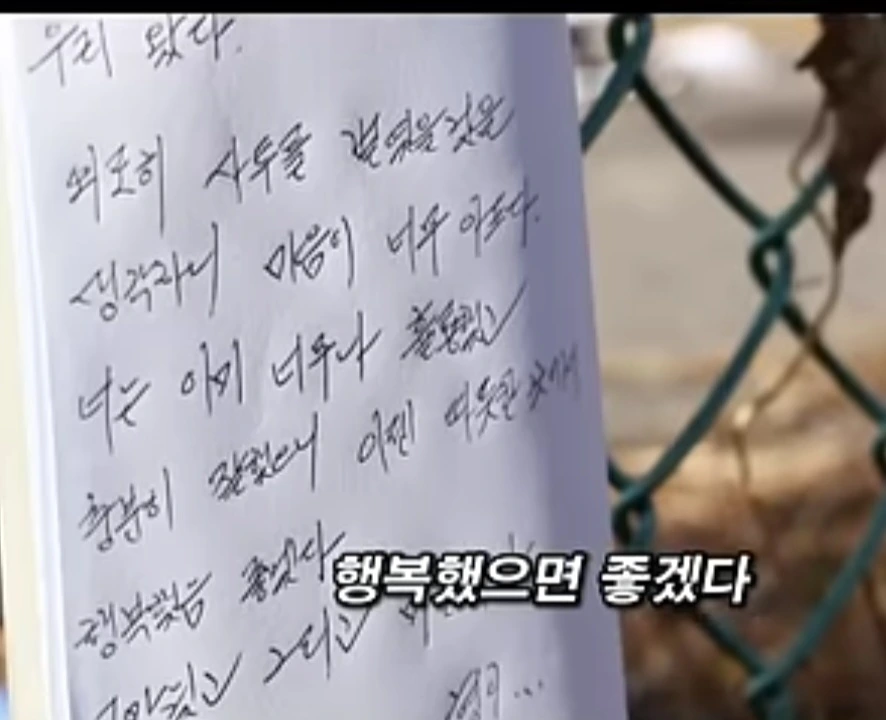 우리 왔다.
외로이 사투를 벌였을 것을
생각하니 마음이 너무 아프다.
너는 이미 너무나 훌륭했고
충분히 잘했으니 이젠 따뜻한 곳에서
행복했음 좋겠다
행복했으면 좋겠다
그리고